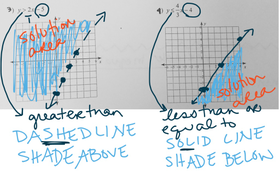 y ≥ 2x - 5
solution
area
greater than
DASHED LINE
SHADE ABOVE
4
y ≤ 4/3 x - 4
solution
area
less than or
equal to
SOLID LINE
SHADE BELOW